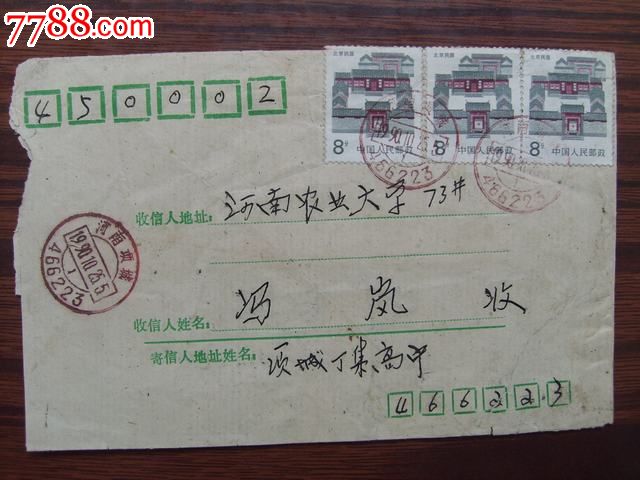 7788.com
450002
北京民居 北京民居 北京民居
8分 中国人民邮政 8分 中国人民邮政 8分 中国人民邮政
466223 466223
收信人地址: 河南农业大学73#
河南项城
1990.10.25.5
1
466223
收信人姓名: 冯岚 收
寄信人地址姓名: 项城丁集高中
466223